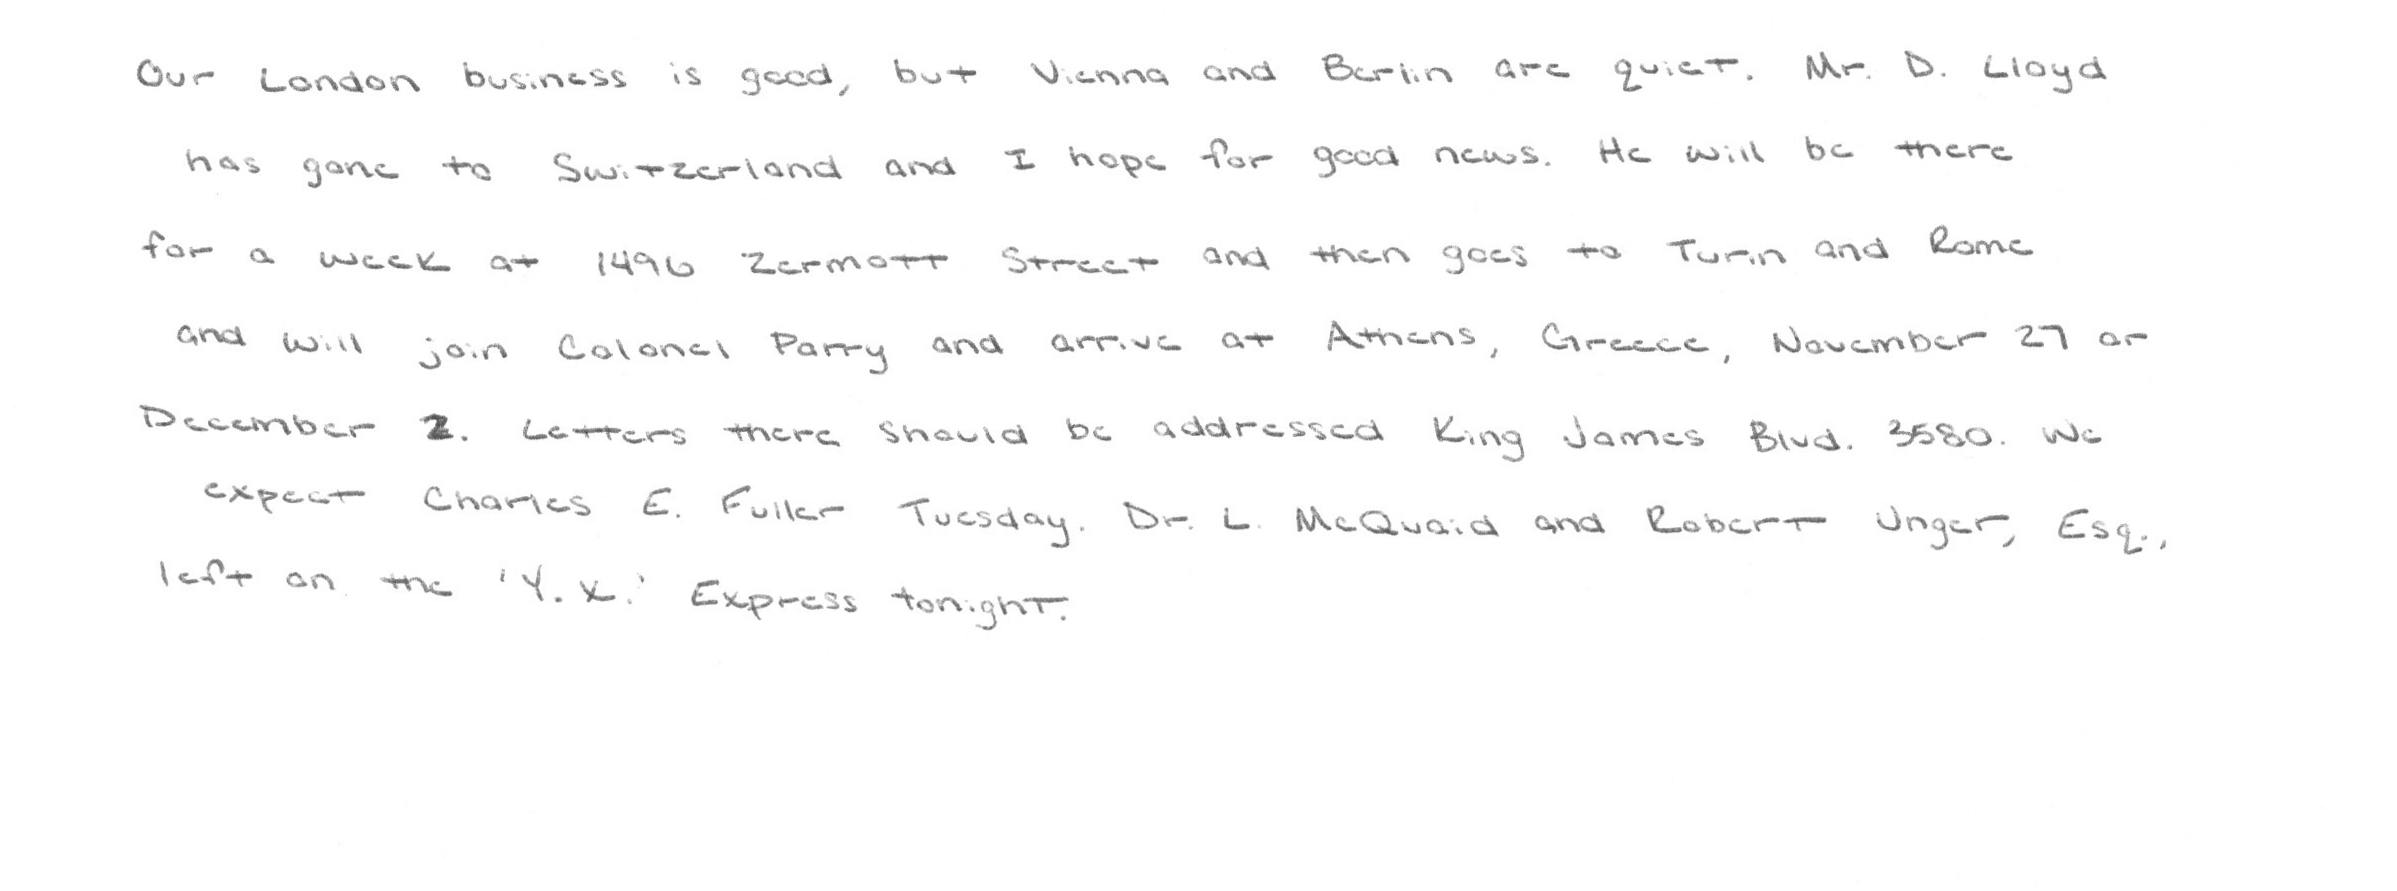 Our London business is good, but Vienna and Berlin are quiet. Mr. D. Lloyd
has gone to Switzerland and I hope for good news. He will be there
for a week at 1496 Zermott Street and then goes to Turin and Rome
and will join Colonel Parry and arrive at Athens, Greece, November 27 or
December 2. Letters there should be addressed King James Blvd. 3580. We
expect Charles E. Fuller Tuesday. Dr. L. McQuaid and Robert Unger, Esq.,
left on the 'Y.X.' Express tonight.